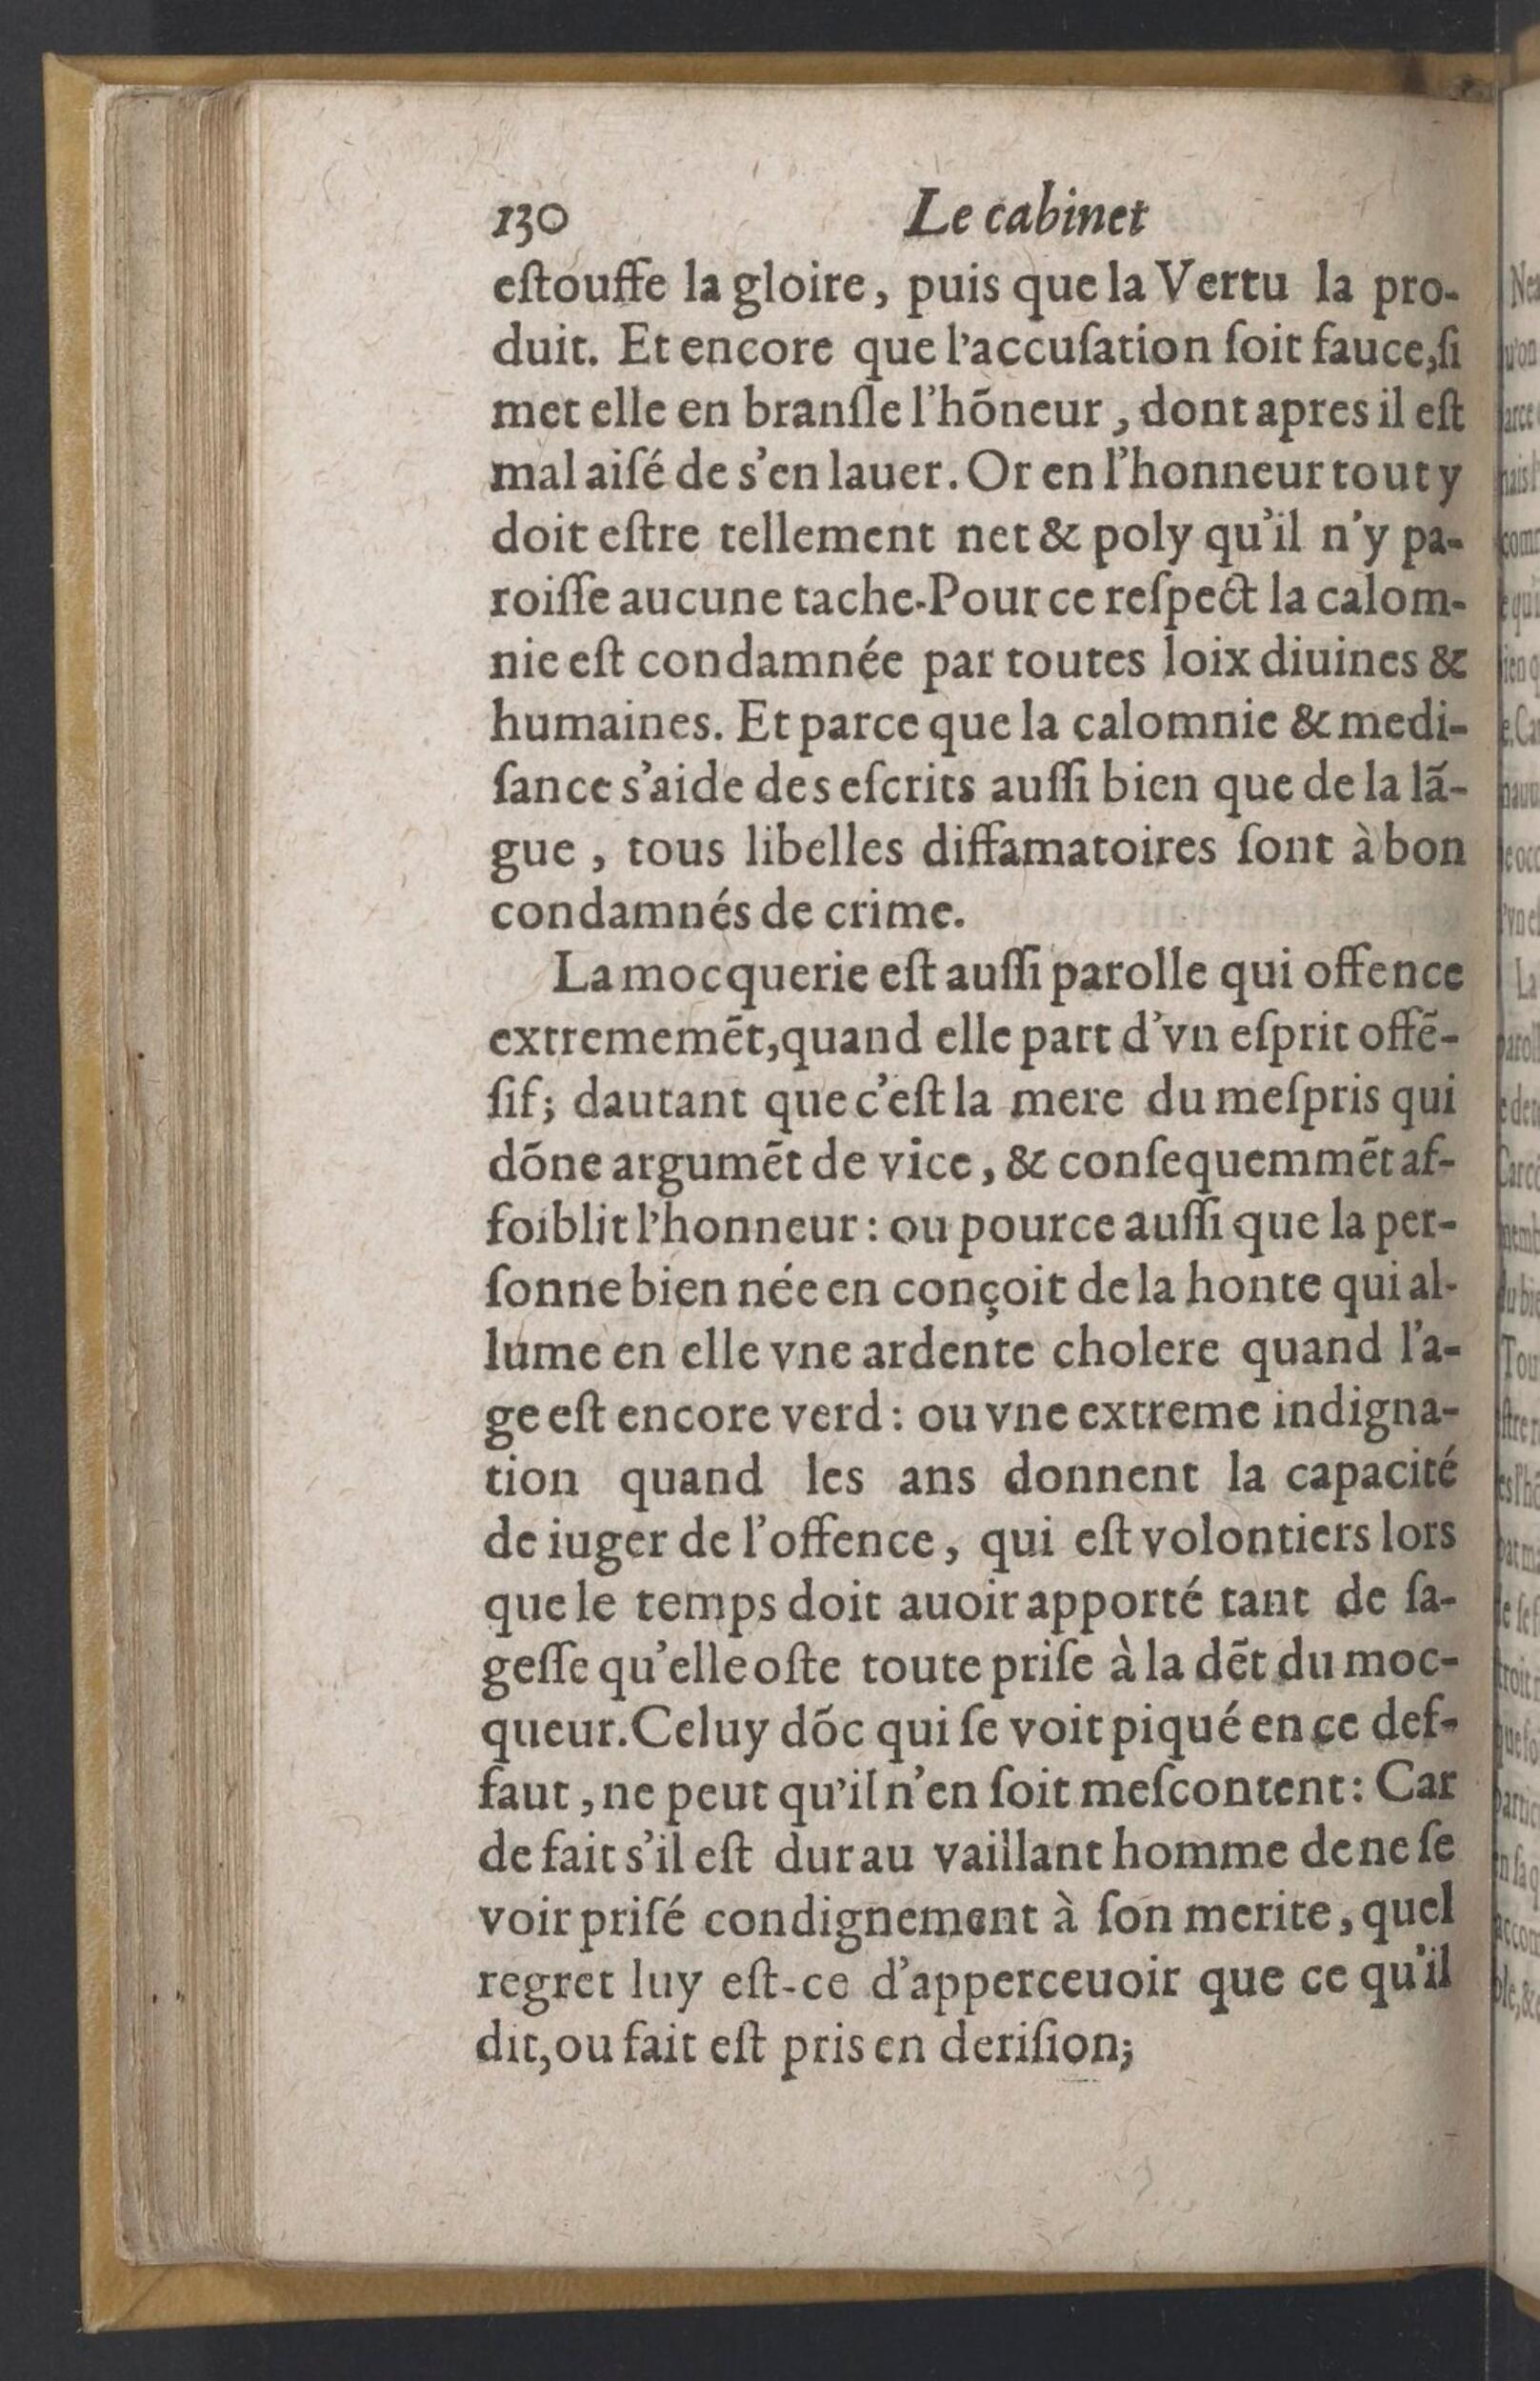 130 Le cabinet
eſtouffe la gloire, puis que la Vertu la pro-
duit. Et encore que l'accuſation ſoit fauce, ſi
met elle en branſle l'hõneur, dont apres il eſt
mal aiſé de s'en lauer. Or en l'honneur tout y
doit eſtre tellement net & poly qu'il n'y pa-
roiſſe aucune tache. Pour ce reſpect la calom-
nie eſt condamnée par toutes loix diuines &
humaines. Et parce que la calomnie & medi-
ſance s'aide des eſcrits auſſi bien que de la lã-
gue, tous libelles diffamatoires ſont à bon
condamnés de crime.
La mocquerie eſt auſſi parolle qui offence
extrememẽt, quand elle part d'vn eſprit offẽ-
ſif; dautant que c'eſt la mere du meſpris qui
dõne argumẽt de vice, & conſequemmẽt af-
foiblit l'honneur: ou pource auſſi que la per-
ſonne bien née en conçoit de la honte qui al-
lume en elle vne ardente cholere quand l'a-
ge eſt encore verd: ou vne extreme indigna-
tion quand les ans donnent la capacité
de iuger de l'offence, qui eſt volontiers lors
que le temps doit auoir apporté tant de ſa-
geſſe qu'elle oſte toute priſe à la dẽt du moc-
queur. Celuy dõc qui ſe voit piqué en ce def-
faut, ne peut qu'il n'en ſoit meſcontent: Car
de fait s'il eſt dur au vaillant homme de ne ſe
voir priſé condignement à ſon merite, quel
regret luy eſt-ce d'apperceuoir que ce qu'il
dit, ou fait eſt pris en deriſion;